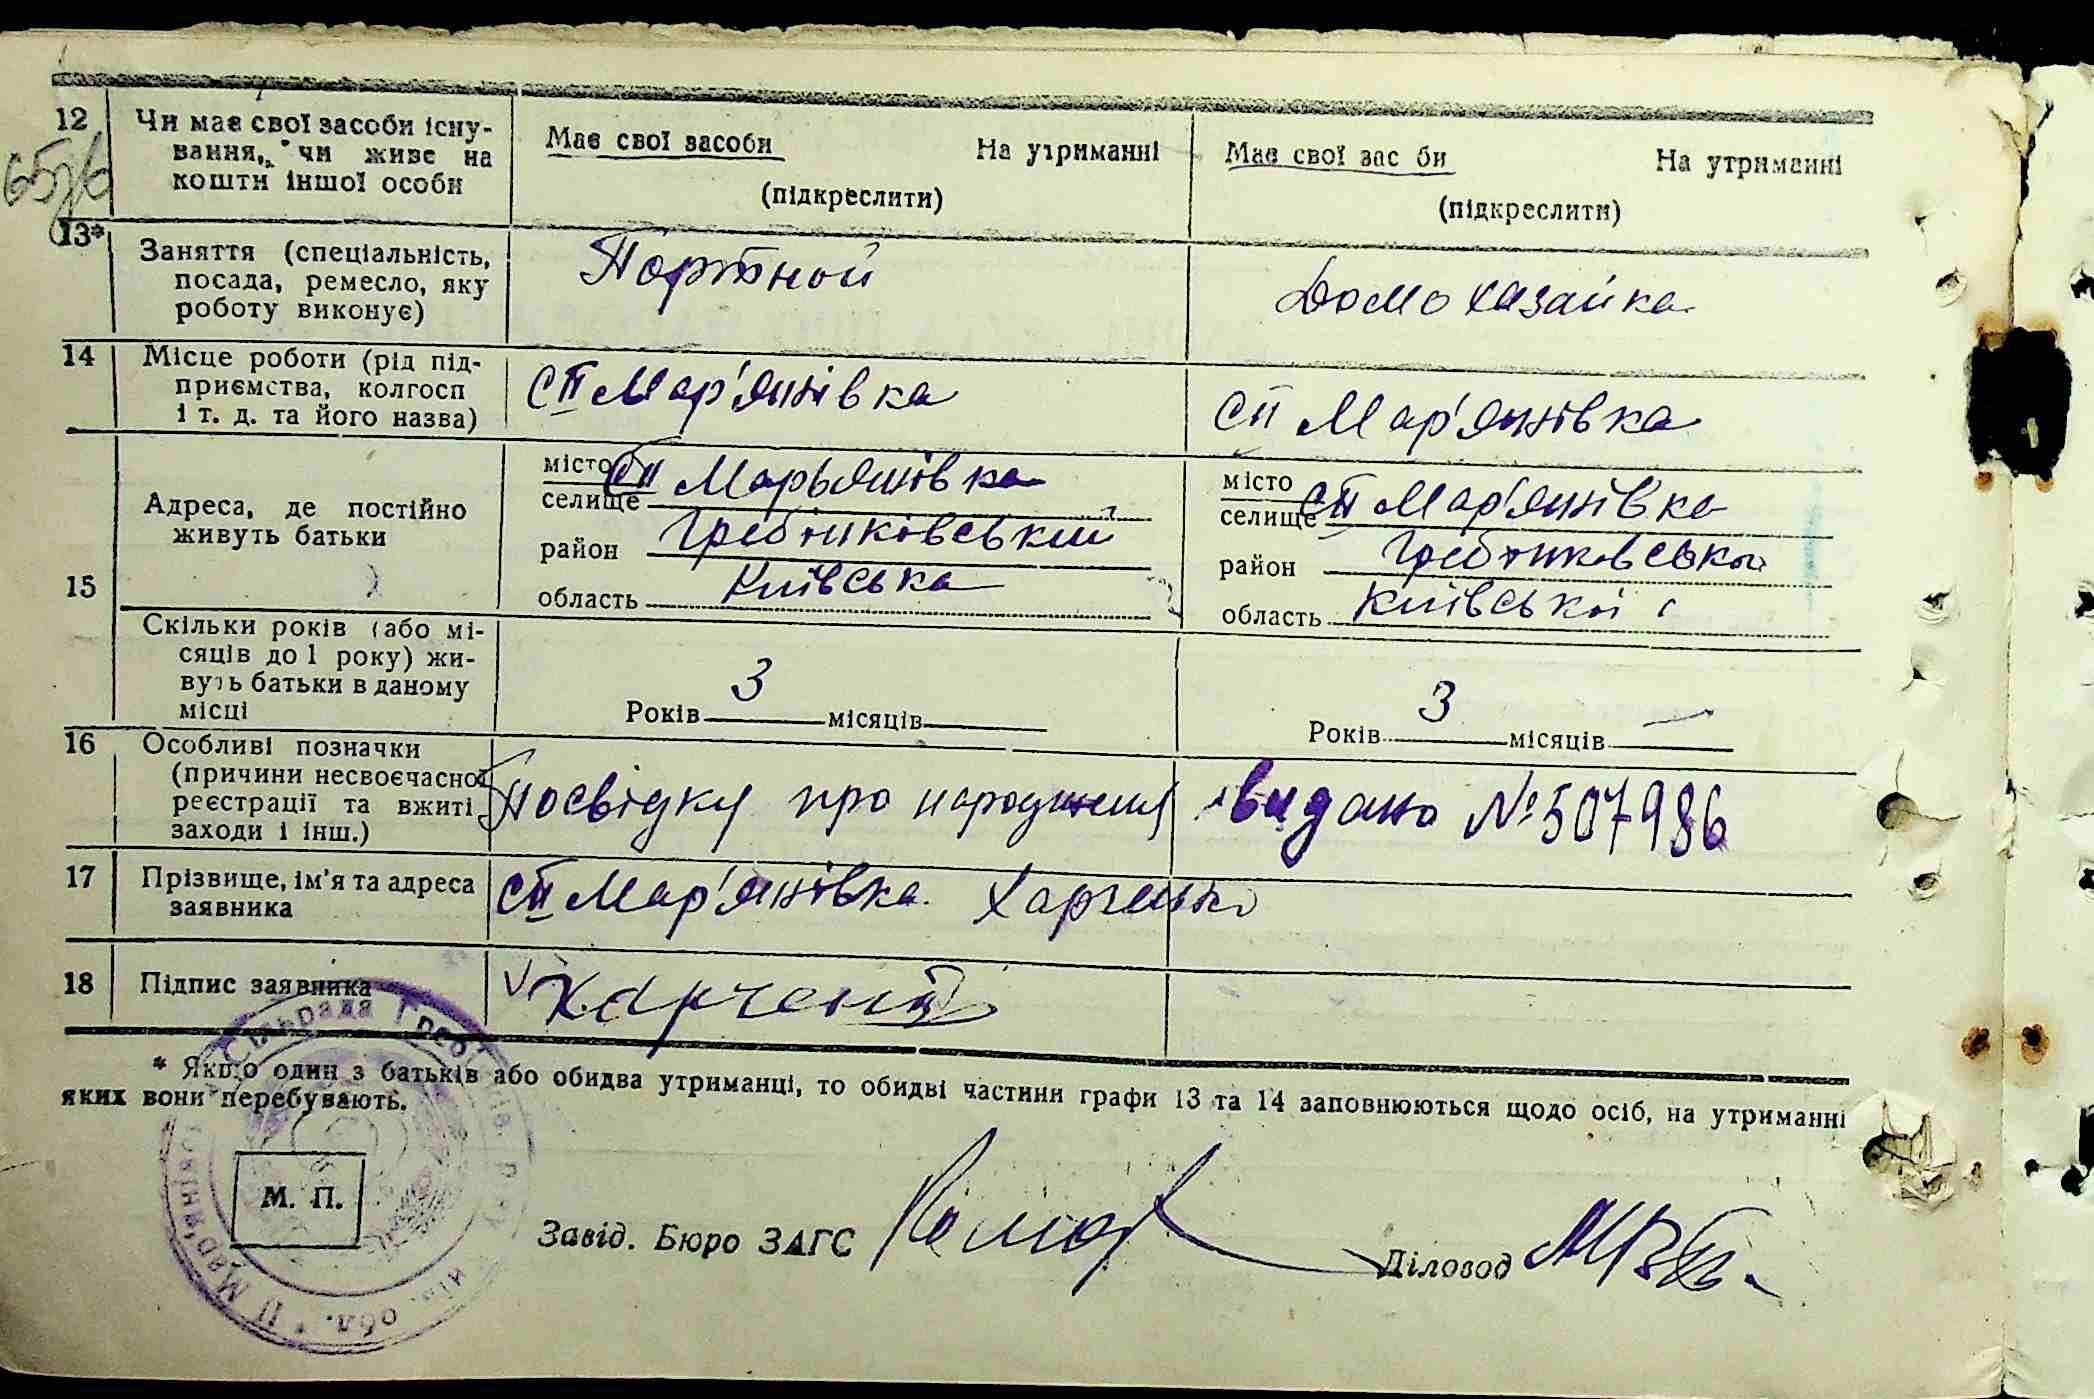 12
Чи має свої засоби існу-
вання, чи живе на
кошти іншої особи
Має свої засоби На утриманні
(підкреслити)
Має свої зас би На утриманні
(підкреслити)
13*
Заняття (спеціальність,
посада, ремесло, яку
роботу виконує)
Портной
Домохазайка
14
Місце роботи (рід під-
приємства, колгосп
і т. д. та його назва)
СП Мар'янівка
СП Мар'янівка
15
Адреса, де постійно
живуть батьки
місто
селище СП Марьянівка
район Гребінковський
область Київська
місто
селище СП Мар'янівка
район
область Київській
Скільки років (або мі-
сяців до 1 року) жи-
вуть батьки в даному
місці
Років 3 місяців
Років 3 місяців —
16
Особливі позначки
(причини несвоєчасної
реєстрації та вжиті
заходи і інш.)
Посвідку про народження видано № 507986
17
Прізвище, ім'я та адреса
заявника
СП Мар'янівка. Харченко
18
Підпис заявника
V Харченко
* Якщо один з батьків або обидва утриманці, то обидві частини графи 13 та 14 заповнюються щодо осіб, на утриманні
яких вони перебувають.
М. П.
Завід. Бюро ЗАГС
Діловод